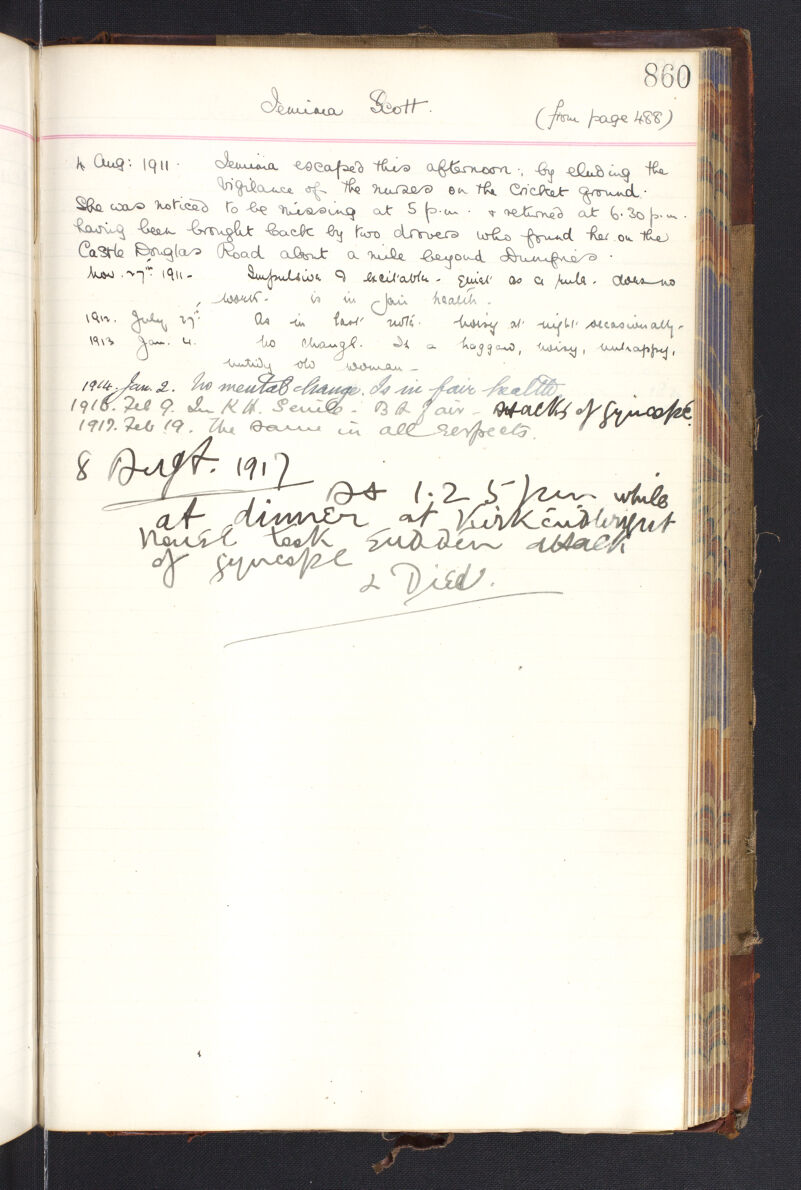 860
Jemima Scott.
(from page 488)
4 Aug: 1911. Jemima escaped this afternoon, by eluding the
vigilance of the nurses on the Cricket ground.
She was noticed to be missing at 5 p.m. & returned at 6.30 p.m.
having been brought back by two drovers who found her on the
Castle Douglas Road about a mile beyond Dumfries.
Nov. 27th 1911 - Impulsive & excitable - quiet as a rule. does no
work. is in fair health.
1912. July 27th As in last note. noisy at night occasionally.
1913 Jan. 4. No change. Is a haggard, noisy, unhappy,
untidy old woman -
1914. Jan. 2. No mental change. Is in fair health.
1916. Feb 9. In K.H. Senile - B H fair - attacks of syncope.
1917. Feb 19. The same in all respects.
8 Sept. 1917
At 1.25 pm while
at dinner at Kirkcudbright
House took sudden attack
of syncope
& Died.